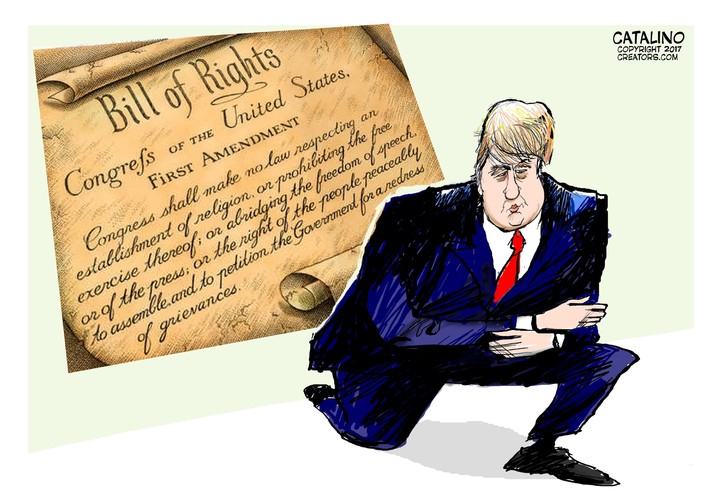 CATALINO
COPYRIGHT 2017
CREATORS.COM
Bill of Rights
Congrefs OF THE United States.
FIRST AMENDMENT
Congress shall make no law respecting an
establishment of religion, or prohibiting the free
exercise thereof; or abridging the freedom of speech,
or of the press; or the right of the people peaceably
to assemble, and to petition the Government for a redress
of grievances.